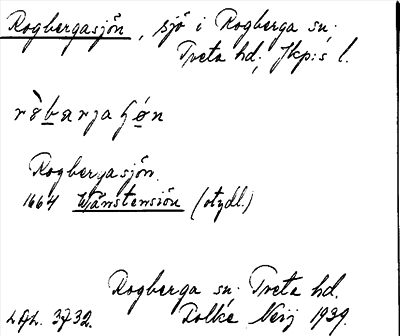 Rogbergasjön, sjö i Rogberga sn.
Tveta hd; Jkp:s l.
Rogbergasjön.
1664 Wånstensiön (otydl.)
Rogberga sn. Tveta hd.
Lappn. 3732. Folke Neij 1939